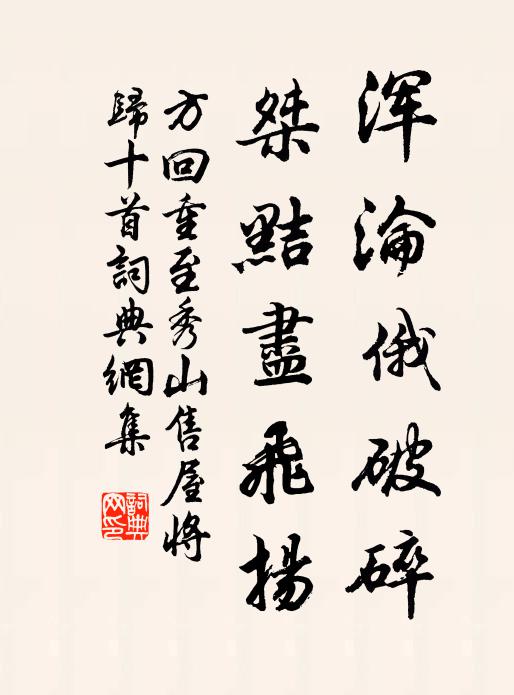 浑淪俄破碎
桀黠盡飛揚
方回重至秀山售屋將
歸十首詞典網集
詞典
网印